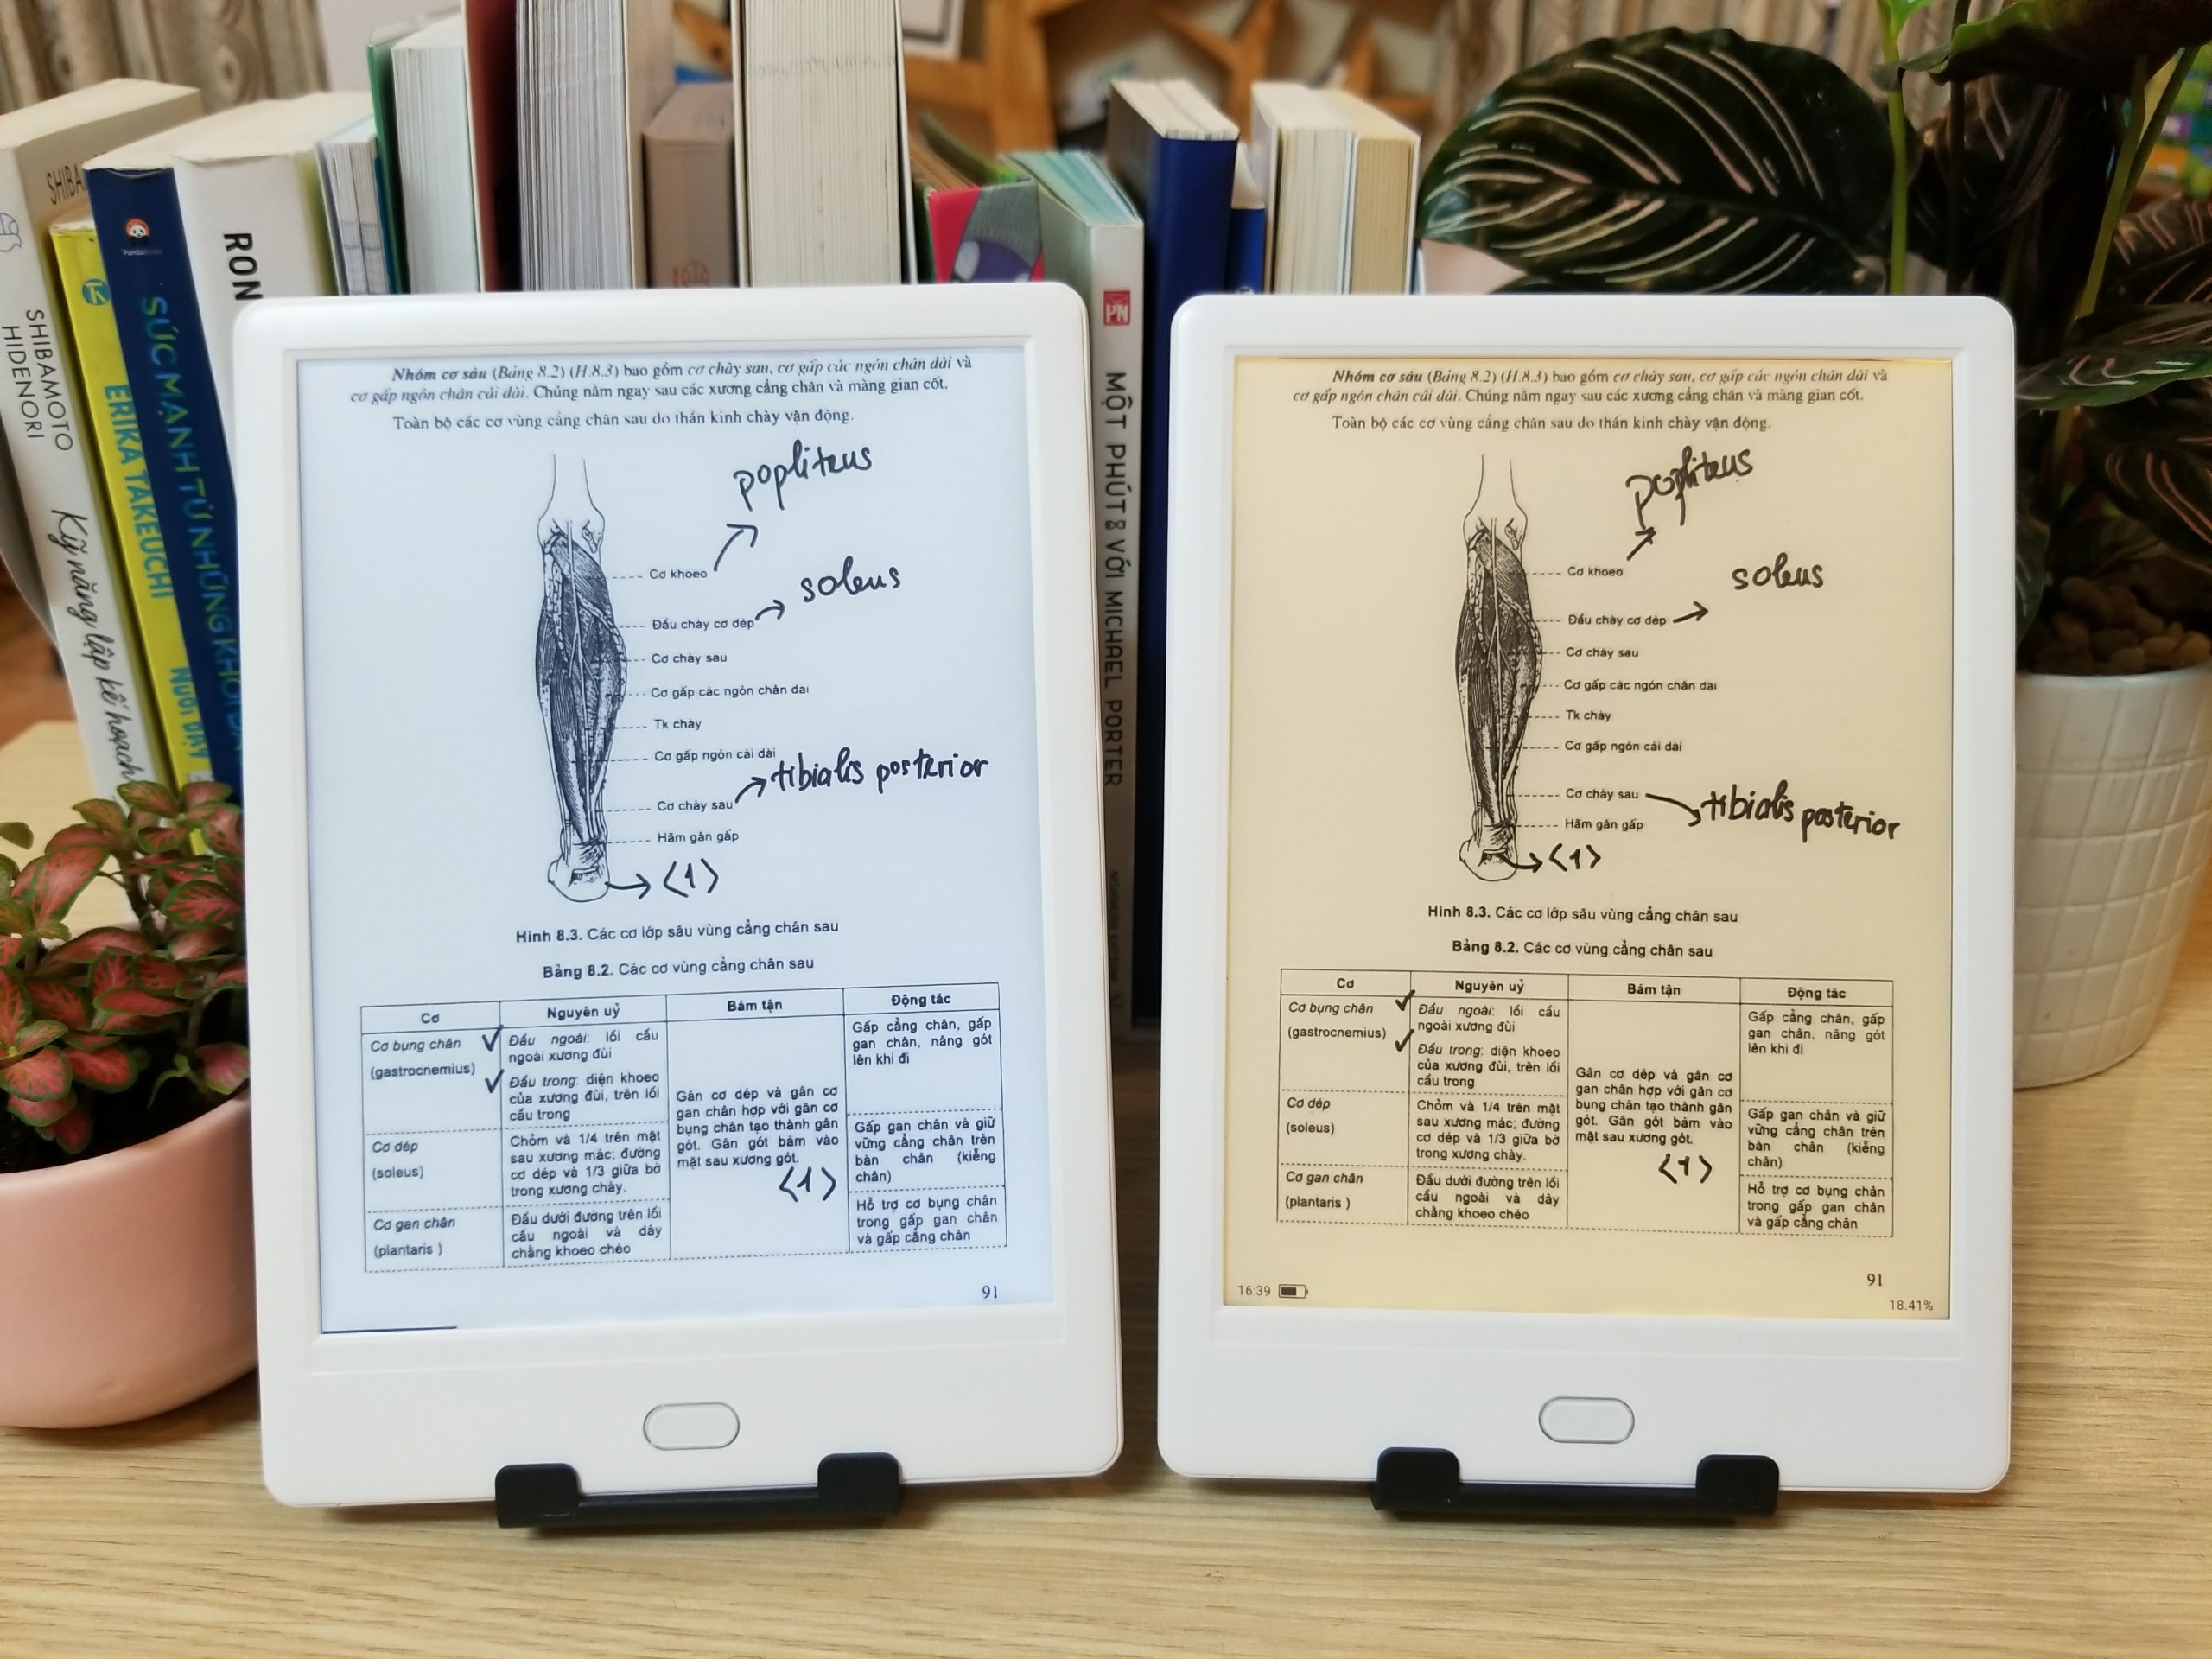 SHIBAMOTO
HIDENORI
Kỹ năng lập kế hoạch
ERIKA TAKEUCHI
NUÔI DẠY
SỨC MẠNH TỪ NHỮNG
RON
PN
MỘT PHÚT VỚI MICHAEL PORTER
Nhóm cơ sâu (Bảng 8.2) (H.8.3) bao gồm cơ chày sau, cơ gấp các ngón chân dài và
cơ gấp ngón chân cái dài. Chúng nằm ngay sau các xương cẳng chân và màng gian cốt.
Toàn bộ các cơ vùng cẳng chân sau do thần kinh chày vận động.
popliteus
Cơ khoeo
soleus
Đầu chày cơ dép
Cơ chày sau
Cơ gấp các ngón chân dài
Tk chày
Cơ gấp ngón cái dài
tibialis posterior
Cơ chày sau
Hãm gân gấp
<1>
Hình 8.3. Các cơ lớp sâu vùng cẳng chân sau
Bảng 8.2. Các cơ vùng cẳng chân sau
Cơ Nguyên uỷ Bám tận Động tác
Cơ bụng chân
(gastrocnemius)
Đầu ngoài: lồi cầu
ngoài xương đùi
Đầu trong: diện khoeo
của xương đùi, trên lồi
cầu trong
Gân cơ dép và gân cơ
gan chân hợp với gân cơ
bụng chân tạo thành gân
gót. Gân gót bám vào
mặt sau xương gót.
<1>
Gấp cẳng chân, gấp
gan chân, nâng gót
lên khi đi
Cơ dép
(soleus)
Chỏm và 1/4 trên mặt
sau xương mác; đường
cơ dép và 1/3 giữa bờ
trong xương chày.
Gấp gan chân và giữ
vững cẳng chân trên
bàn chân (kiễng
chân)
Cơ gan chân
(plantaris )
Đầu dưới đường trên lồi
cầu ngoài và dây
chằng khoeo chéo
Hỗ trợ cơ bụng chân
trong gấp gan chân
và gấp cẳng chân
91
Nhóm cơ sâu (Bảng 8.2) (H.8.3) bao gồm cơ chày sau, cơ gấp các ngón chân dài và
cơ gấp ngón chân cái dài. Chúng nằm ngay sau các xương cẳng chân và màng gian cốt.
Toàn bộ các cơ vùng cẳng chân sau do thần kinh chày vận động.
popliteus
Cơ khoeo
soleus
Đầu chày cơ dép
Cơ chày sau
Cơ gấp các ngón chân dài
Tk chày
Cơ gấp ngón cái dài
Cơ chày sau
tibialis posterior
Hãm gân gấp
<1>
Hình 8.3. Các cơ lớp sâu vùng cẳng chân sau
Bảng 8.2. Các cơ vùng cẳng chân sau
Cơ Nguyên uỷ Bám tận Động tác
Cơ bụng chân
(gastrocnemius)
Đầu ngoài: lồi cầu
ngoài xương đùi
Đầu trong: diện khoeo
của xương đùi, trên lồi
cầu trong
Gân cơ dép và gân cơ
gan chân hợp với gân cơ
bụng chân tạo thành gân
gót. Gân gót bám vào
mặt sau xương gót.
<1>
Gấp cẳng chân, gấp
gan chân, nâng gót
lên khi đi
Cơ dép
(soleus)
Chỏm và 1/4 trên mặt
sau xương mác; đường
cơ dép và 1/3 giữa bờ
trong xương chày.
Gấp gan chân và giữ
vững cẳng chân trên
bàn chân (kiễng
chân)
Cơ gan chân
(plantaris )
Đầu dưới đường trên lồi
cầu ngoài và dây
chằng khoeo chéo
Hỗ trợ cơ bụng chân
trong gấp gan chân
và gấp cẳng chân
91
16:39
18.41%